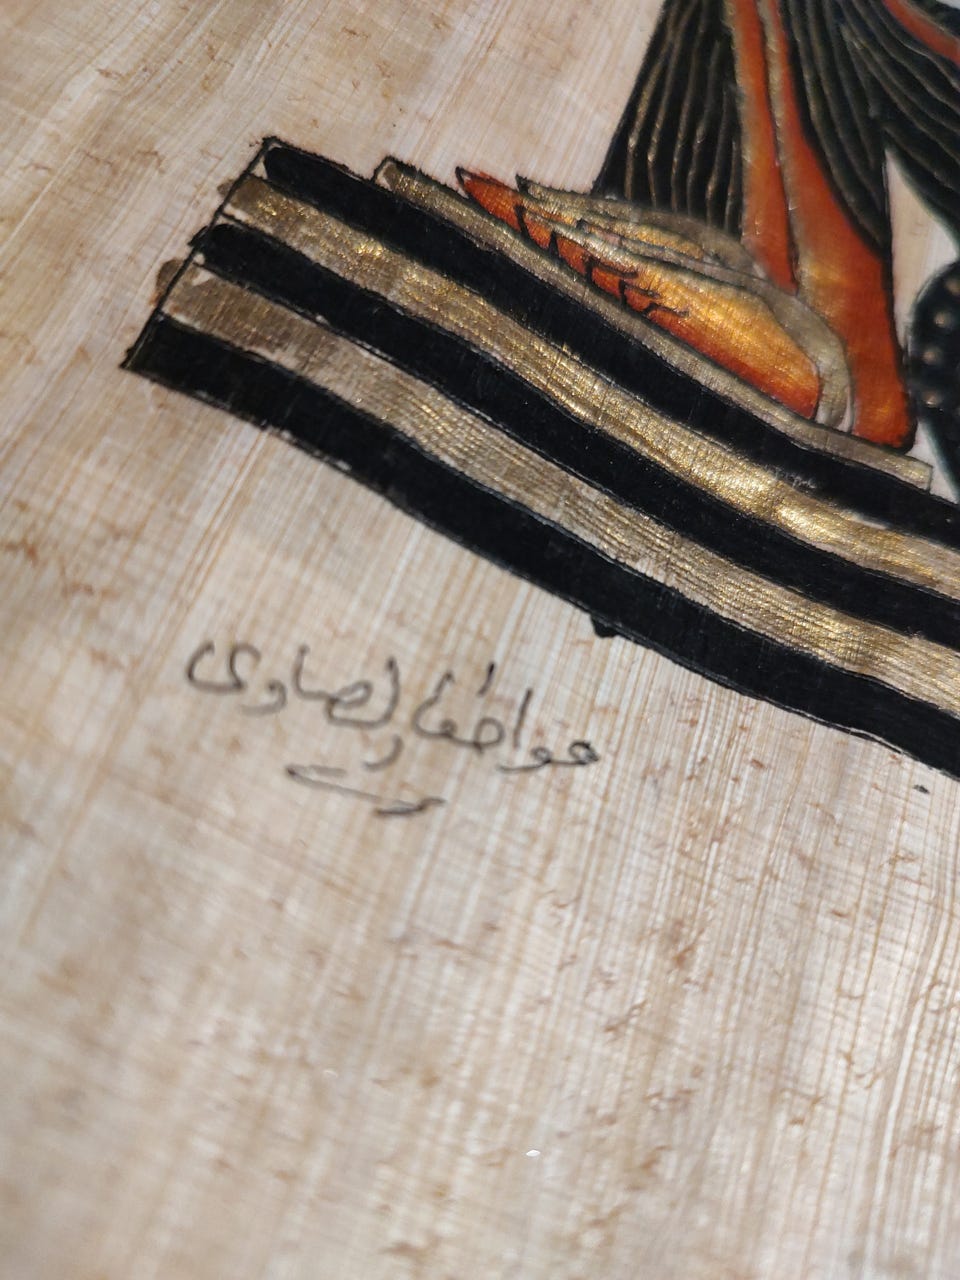 عواطف الصاوى